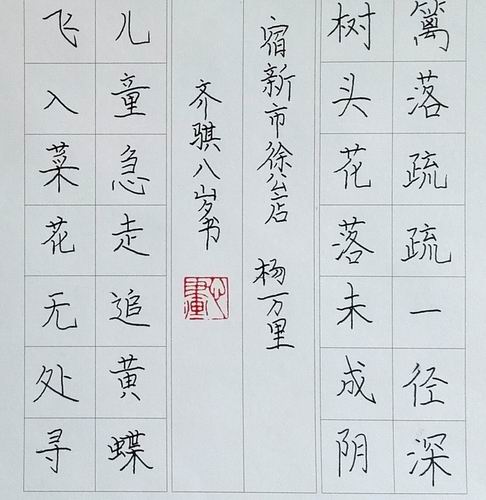 篱落疏疏一径深
树头花落未成阴
宿新市徐公店 杨万里
齐骐八岁书
儿童急走追黄蝶
飞入菜花无处寻